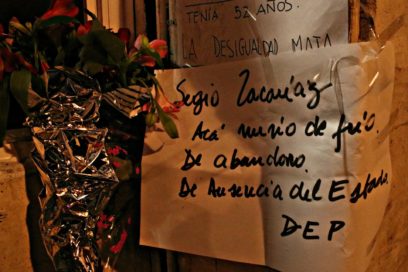 TENÍA 52 AÑOS.
LA DESIGUALDAD MATA
Sergio Zacarías
Acá murió de frío.
De abandono.
De Ausencia del Estado.
DEP